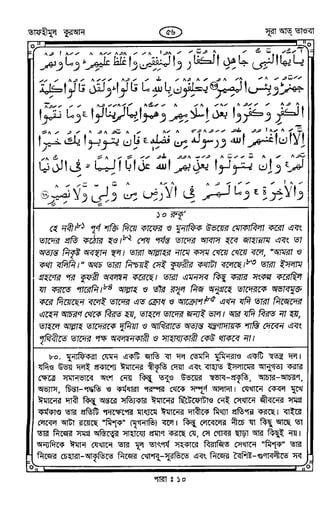 তাফহীমুল কুরআন
৫৬
সূরা আত্ তাওবা
يَا أَيُّهَا النَّبِيُّ جَاهِدِ الْكُفَّارَ وَالْمُنٰفِقِيْنَ وَاغْلُظْ عَلَيْهِمْ ۚ وَمَأْوٰىهُمْ
جَهَنَّمُ ۚ وَبِئْسَ الْمَصِيْرُ يَحْلِفُوْنَ بِاللّٰهِ مَا قَالُوْا ۚ وَلَقَدْ قَالُوْا كَلِمَةَ
الْكُفْرِ وَكَفَرُوْا بَعْدَ اِسْلَامِهِمْ وَهَمُّوْا بِمَا لَمْ يَنَالُوْا ۚ وَمَا نَقَمُوْا
اِلَّا اَنْ اَغْنٰىهُمُ اللّٰهُ وَرَسُوْلُهٗ مِنْ فَضْلِهٖ ۚ فَاِنْ يَّتُوْبُوْا يَكُ خَيْرًا
لَّهُمْ ۚ وَاِنْ يَّتَوَلَّوْا يُعَذِّبْهُمُ اللّٰهُ عَذَابًا اَلِيْمًا ۙ فِى الدُّنْيَا
وَالْاٰخِرَةِ ۚ وَمَا لَهُمْ فِى الْاَرْضِ مِنْ وَّلِيٍّ وَّلَا نَصِيْرٍ
১০ রুকূ'
হে নবী! পূর্ণ শক্তি দিয়ে কাফের ও মুনাফিক উভয়ের মোকাবিলা করো এবং
তাদের প্রতি কঠোর হও। শেষ পর্যন্ত তাদের আবাস হবে জাহান্নাম এবং তা
অত্যন্ত নিকৃষ্ট অবস্থান স্থল। তারা আল্লাহর নামে কসম খেয়ে খেয়ে বলে, "আমরা ও
কথা বলিনি।" অথচ তারা নিশ্চয়ই সেই কুফরীর কথাটা বলেছে। তারা ইসলাম
গ্রহণের পর কুফরী অবলম্বন করেছে। তারা এমনসব কিছু করার সংকল্প করেছিল
যা করতে পারেনি। আল্লাহ ও তাঁর রসূল নিজ অনুগ্রহে তাদেরকে অভাবমুক্ত
করে দিয়েছেন বলেই তাদের এত ক্রোধ ও আক্রোশ! এখন যদি তারা নিজেদের
এহেন আচরণ থেকে বিরত হয়, তাহলে তাদের জন্যই ভাল। আর যদি বিরত না হয়,
তাহলে আল্লাহ তাদেরকে দুনিয়া ও আখিরাতে অত্যন্ত যন্ত্রণাদায়ক শাস্তি দেবেন এবং
পৃথিবীতে তাদের পক্ষ অবলম্বনকারী ও সাহায্যকারী কেউ থাকবে না।
৮০. মুনাফিকরা যেমন একটি জাতি বা দল তেমনি মুমিনরাও একটি স্বতন্ত্র দল।
যদিও উভয় দলই প্রকাশ্যে ঈমানের স্বীকৃতি দেয়া এবং বাহ্যত ইসলামের আনুগত্য করার
ক্ষেত্রে সমানভাবে অংশ নেয় কিন্তু তবুও উভয়ের স্বভাব-প্রকৃতি, আচার-আচরণ,
অভ্যাস, চিন্তা-পদ্ধতি ও কর্মধারা পরস্পর থেকে সম্পূর্ণ আলাদা। যেখানে কেবল মুখে
ঈমানের দাবী কিন্তু অন্তরে সত্যিকার ঈমানের ছিটেফোঁটাও নেই সেখানে জীবনের সমগ্র
কর্মকাণ্ড তার প্রতিটি পদক্ষেপের মাধ্যমে ঈমানের দাবীকে মিথ্যা প্রতিপন্ন করছে। বাইরে
লেবেল আটা রয়েছে "মিশ্‌ক" (মৃগনাভি) বলে। কিন্তু লেবেলের নীচে যা কিছু আছে তা
তার নিজের সমগ্র অস্তিত্বের সাহায্যে প্রমাণ করছে যে, সে গোবর ছাড়া আর কিছুই নয়।
অন্যদিকে ঈমান যেখানে তার মূল তাৎপর্য সহকারে বিরাজিত সেখানে "মিশ্‌ক" তার
নিজের চেহারা-আকৃতিতে নিজের খোশবু-সুরভিতে এবং নিজের বৈশিষ্ট-গুণাবলীতে সব
পারা : ১০